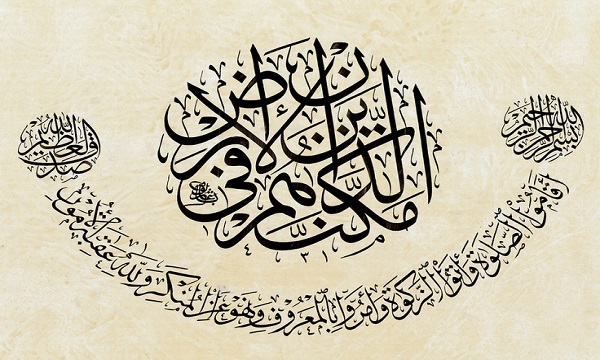 بسم الله الرحمن الرحيم
الذين إن مكنهم في الأرض
أقاموا الصلوة وآتوا الزكوة وأمروا بالمعروف ونهوا عن المنكر ولله عقبة الأمور
صدق الله العظيم
١٤٣١